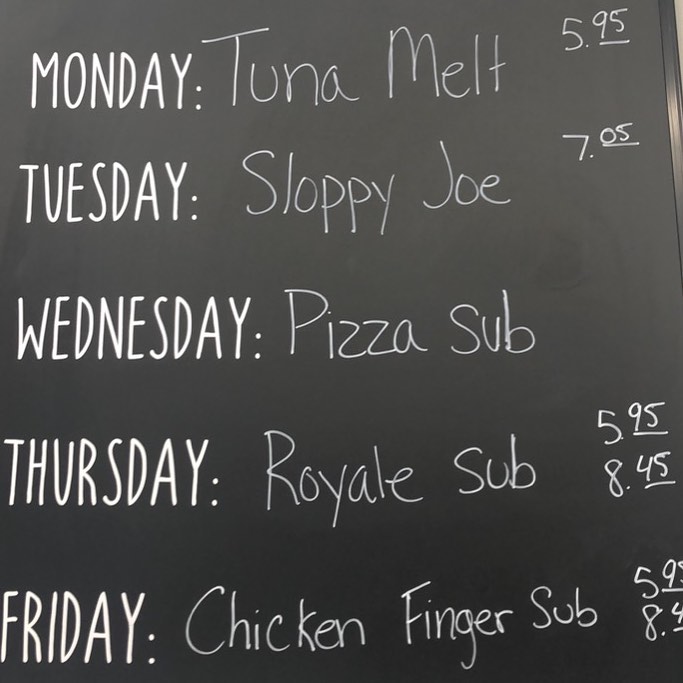 MONDAY: Tuna Melt 5.95
TUESDAY: Sloppy Joe 7.05
WEDNESDAY: Pizza Sub
THURSDAY: Royale Sub 5.95
8.45
FRIDAY: Chicken Finger Sub